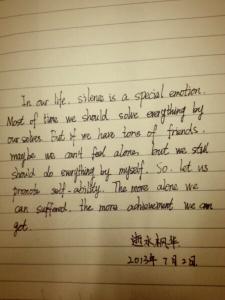 In our life, silence is a special emotion.
Most of time we should solve everything by
ourselves. But if we have tons of friends.
maybe we can't feel alone, but we still
should do everything by myself. So. let us
promote self-ability. The more alone we
can suffered. the more achievement we can
got.
2013年7月2日